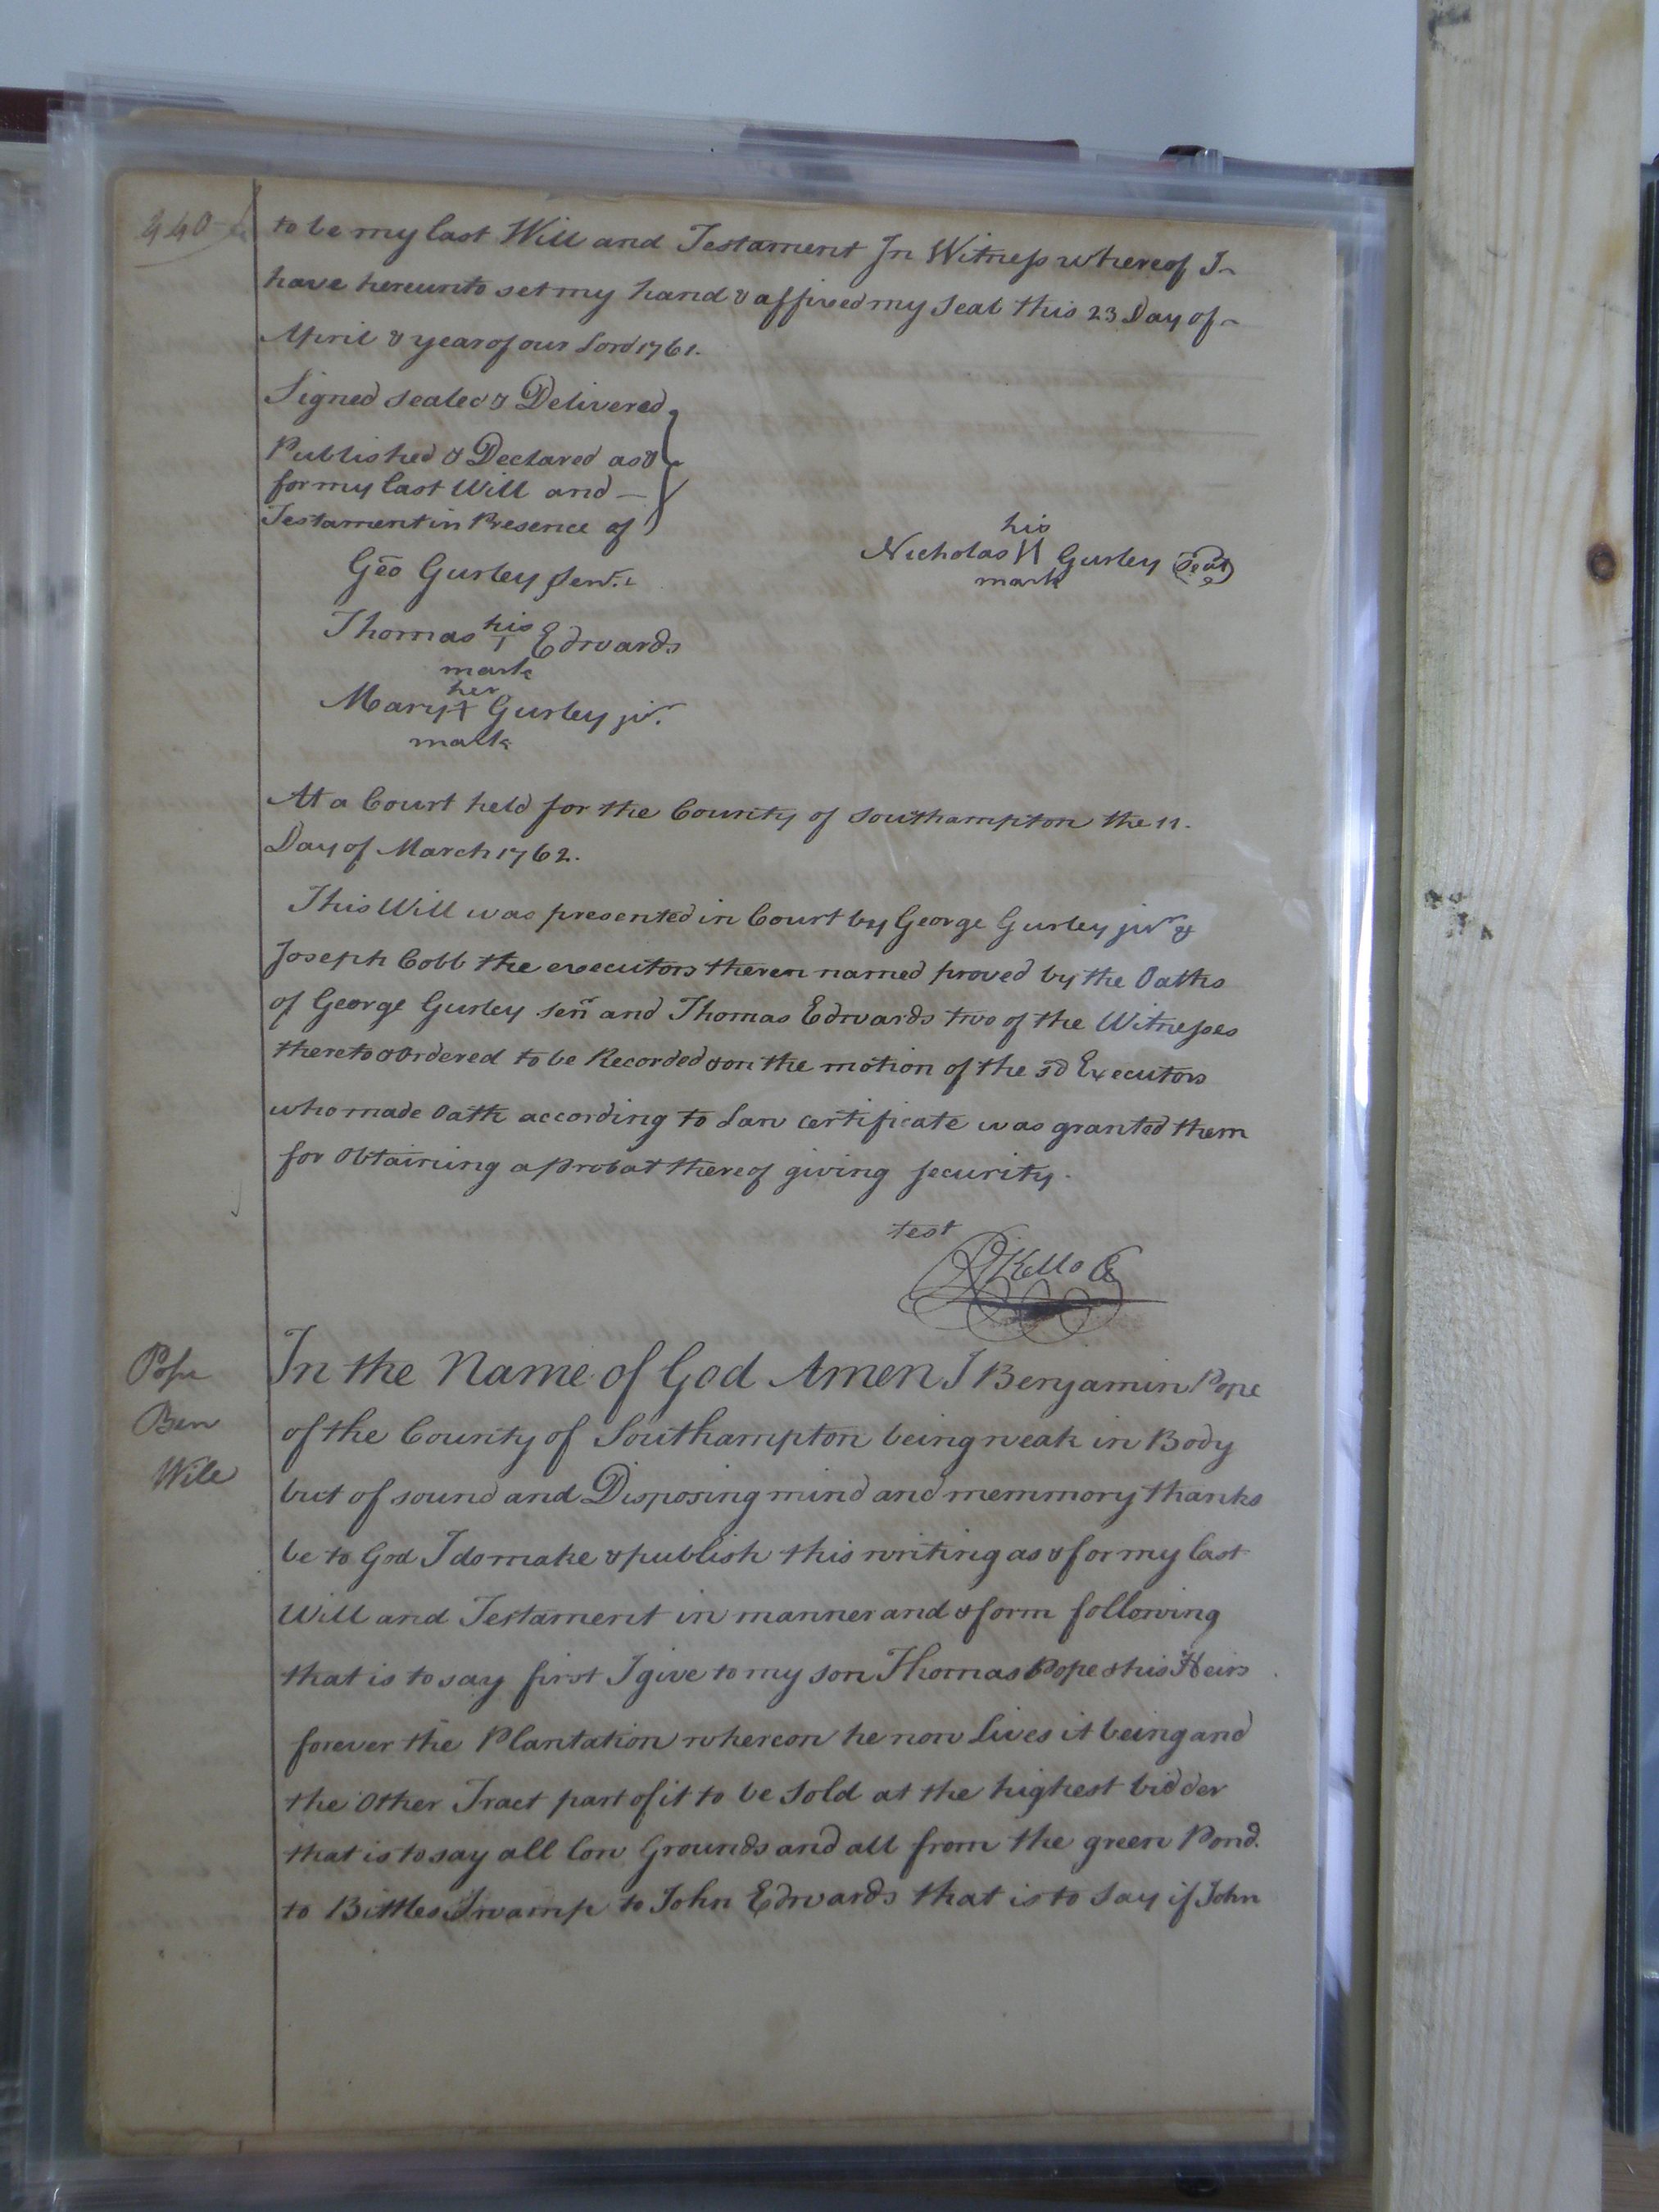 240
to be my last Will and Testament In Witness whereof I
have hereunto set my hand & affixed my Seal this 23 Day of
April & year of our Lord 1761.
Signed sealed & Delivered
Published & Declared as &
for my last Will and
Testament in Presence of
his
Nicholas N Gurley (Seal)
mark
Geo Gurley Senr.
his
Thomas T Edwards
mark
her
Mary + Gurley jur.
mark
At a Court held for the County of Southampton the 11.
Day of March 1762.
This Will was presented in Court by George Gurley jur &
Joseph Cobb the executors theren named proved by the Oaths
of George Gurley senr and Thomas Edwards two of the Witnesses
thereto & Ordered to be Recorded & on the motion of the sd Executors
who made Oath according to Law certificate was granted them
for Obtaining a probat thereof giving security.
test
R Kello C
Pope
Ben
Will
In the Name of God Amen I Benjamin Pope
of the County of Southampton being weak in Body
but of sound and Disposing mind and memmory thanks
be to God I do make & publish this writing as & for my last
Will and Testament in manner and & form following
that is to say first I give to my son Thomas Pope & his Heirs
forever the Plantation whereon he now Lives it being and
the Other Tract part of it to be Sold at the highest bidder
that is to say all low Grounds and all from the green Pond.
to Bittles Swamp to John Edwards that is to Say if John